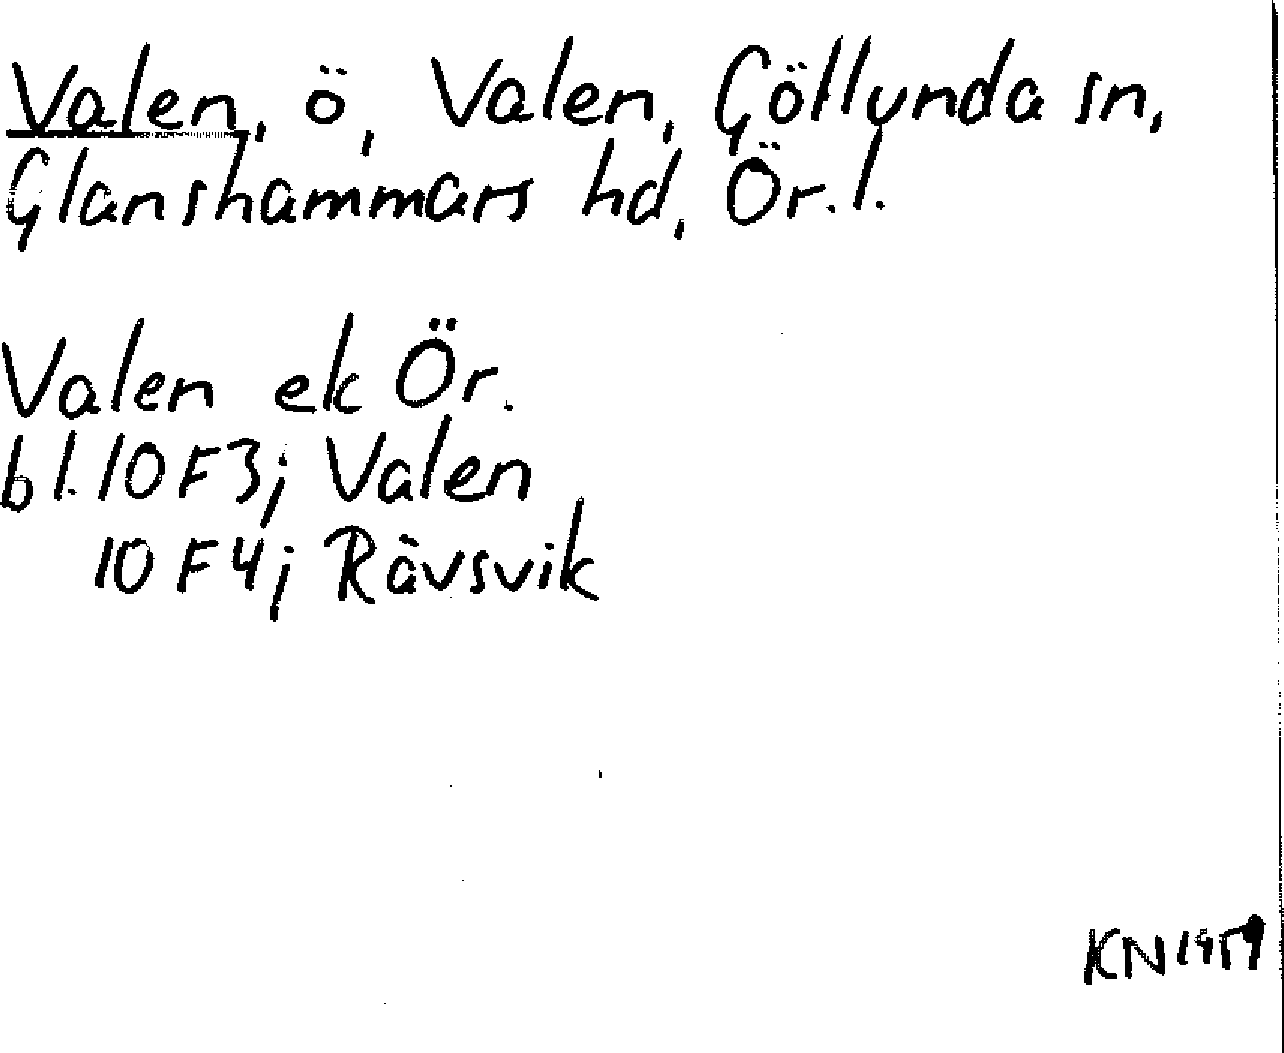 Valen, ö, Valen, Göllunda sn,
Glanshammars hd, Ör. l.
Valen ek Ör.
bl. 10 F 3; Valen
10 F 4; Rävsvik
KN